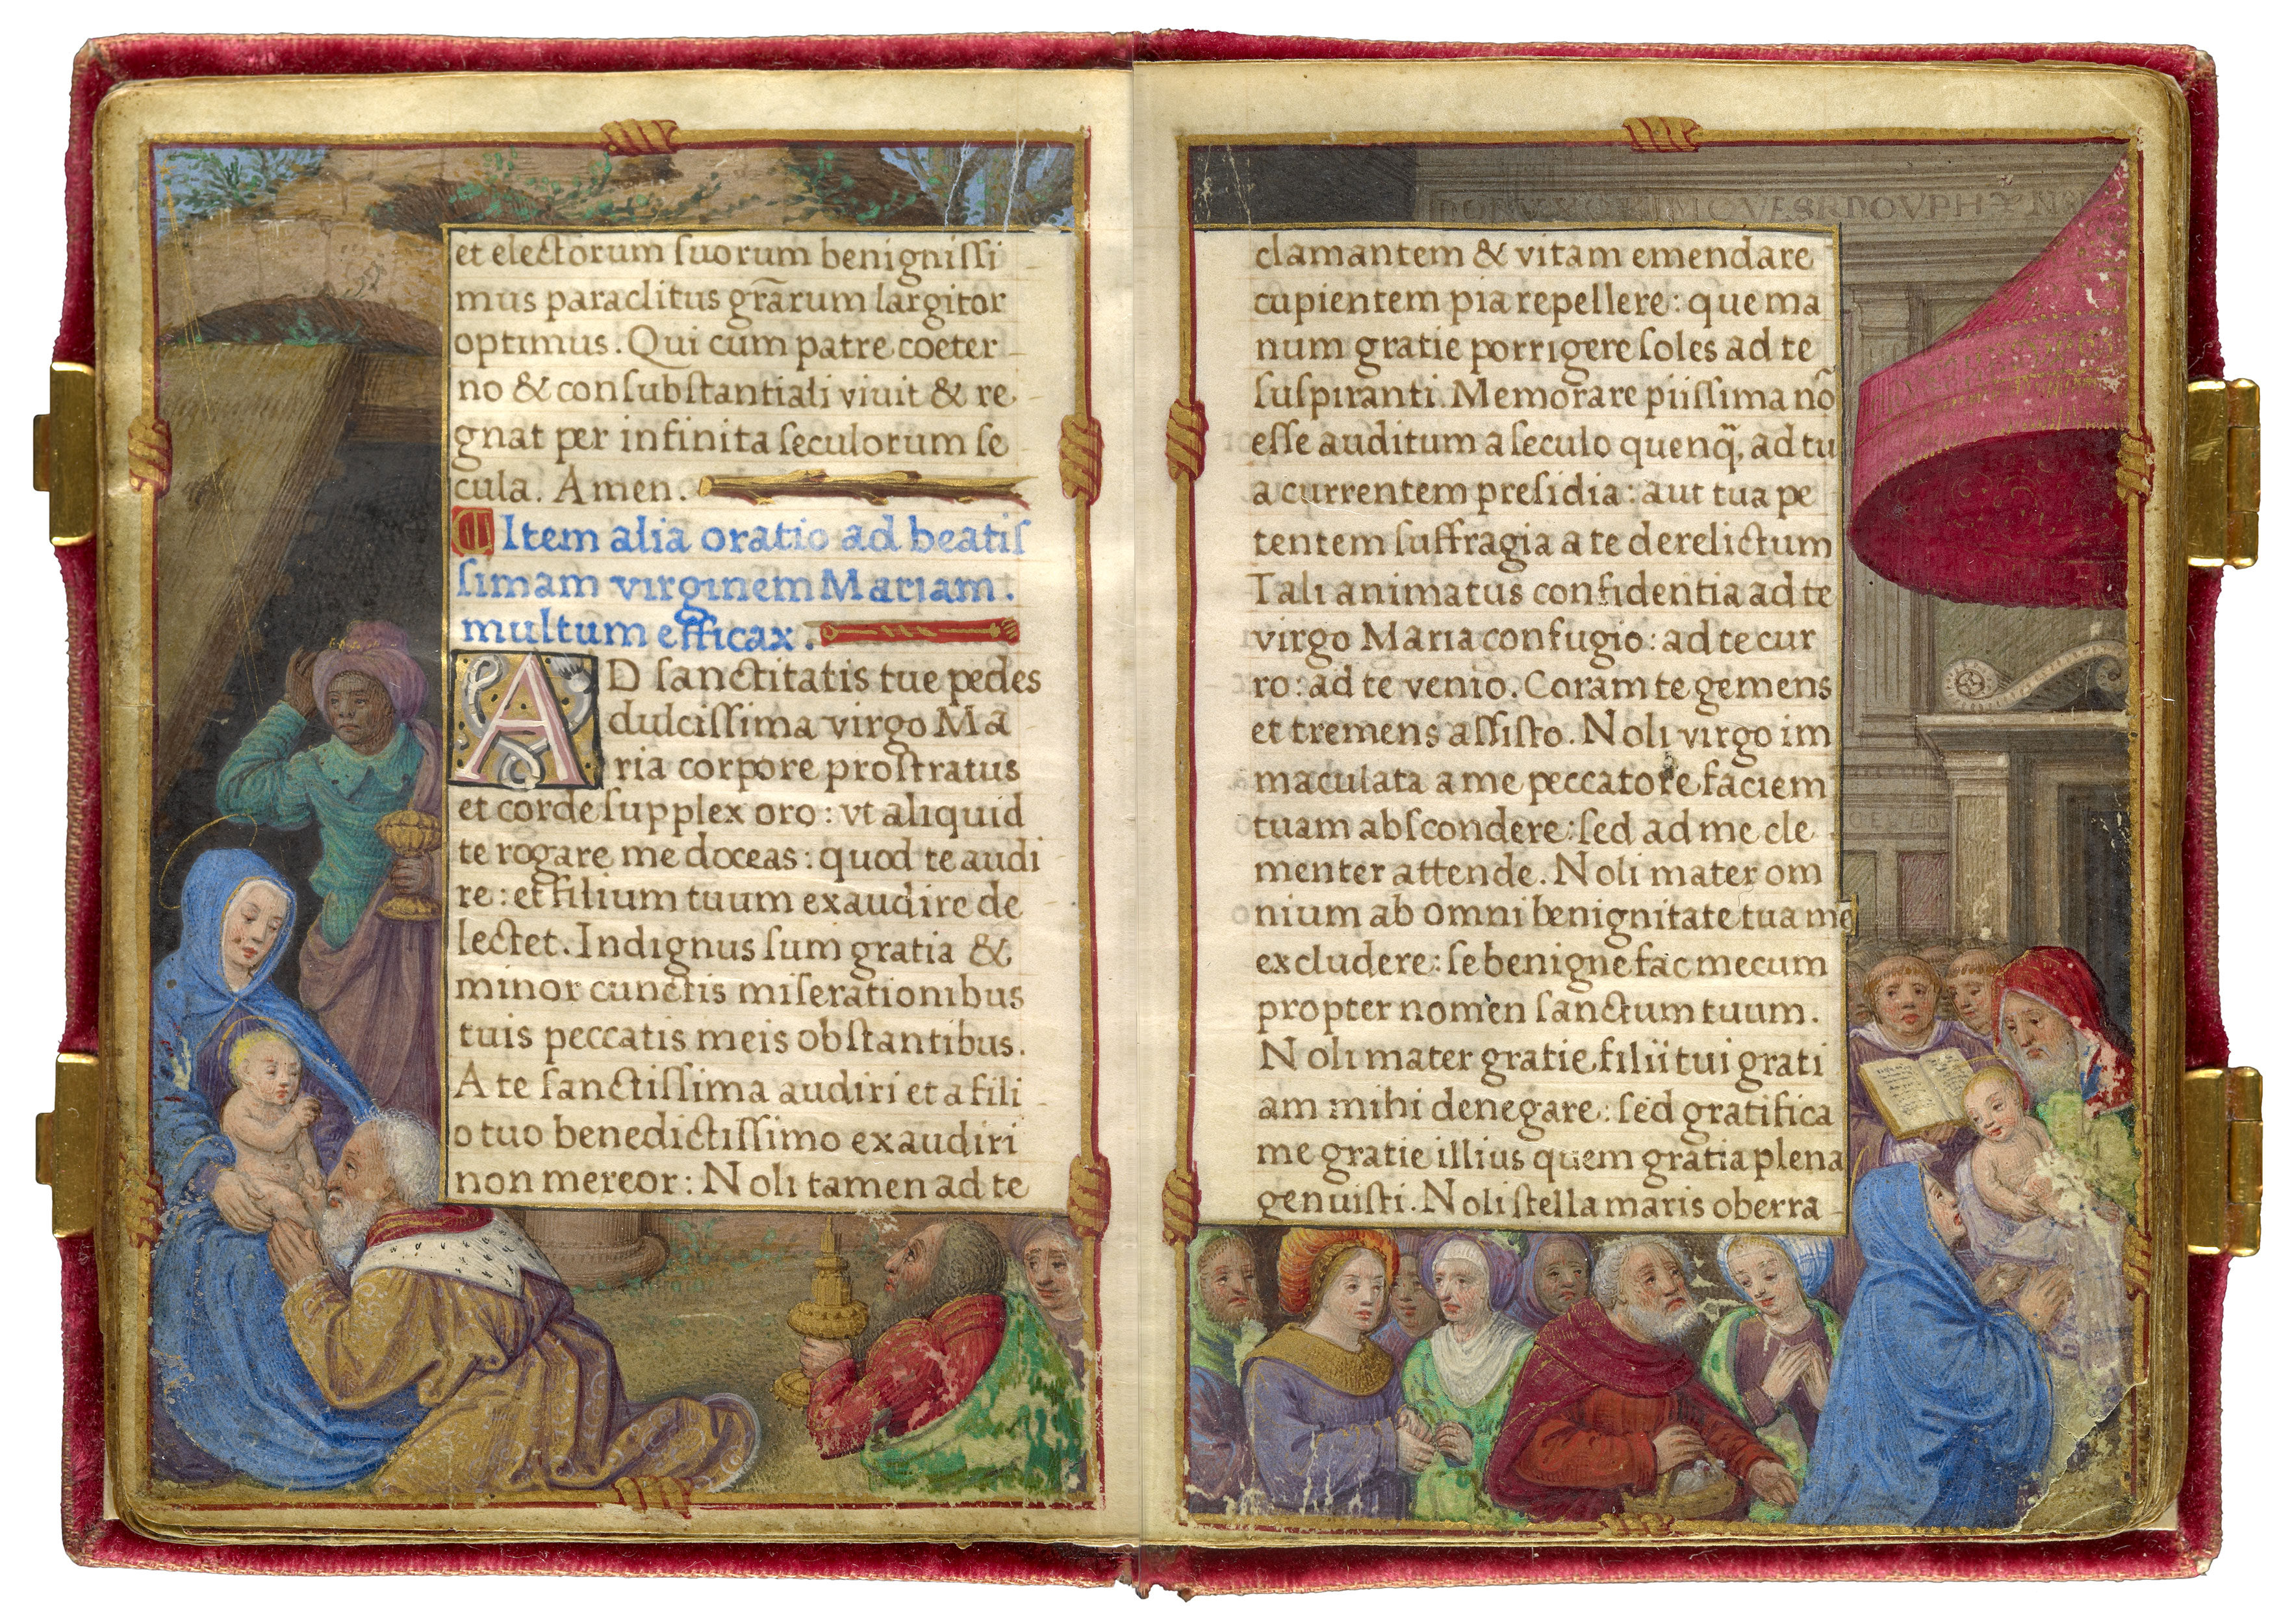 et electorum ſuorum benigniſſi
mus paraclitus gr̄arum largitor
optimus. Qui cum patre coeter
no & conſubſtantiali viuit & re
gnat per infinita ſeculorum ſe
cula. Amen.
Item alia oratio ad beatiſ
ſimam virginem Mariam.
multum efficax.
AD ſanctitatis tue pedes
dulciſſima virgo Ma
ria corpore proſtratus
et corde ſupplex oro: vt aliquid
te rogare me doceas: quod te audi
re: et filium tuum exaudire de
lectet. Indignus ſum gratia &
minor cunctis miſerationibus
tuis peccatis meis obſtantibus.
A te ſanctiſſima audiri et a fili
o tuo benedictiſſimo exaudiri
non mereor: Noli tamen ad te
clamantem & vitam emendare
cupientem pia repellere: que ma
num gratie porrigere ſoles ad te
ſuſpiranti. Memorare piiſſima nō
eſſe auditum a ſeculo quenq̃, ad tu
a currentem preſidia: aut tua pe
tentem ſuffragia a te derelictum
Tali animatus confidentia ad te
virgo Maria confugio: ad te cur
ro: ad te venio. Coram te gemens
et tremens aſſiſto. Noli virgo im
maculata a me peccatore faciem
tuam abſcondere: ſed ad me cle
menter attende. Noli mater om
nium ab omni benignitate tua me
excludere: ſe benigne fac mecum
propter nomen ſanctum tuum.
Noli mater gratie filii tui grati
am mihi denegare: ſed gratifica
me gratie illius quem gratia plena
genuiſti. Noli ſtella maris oberra